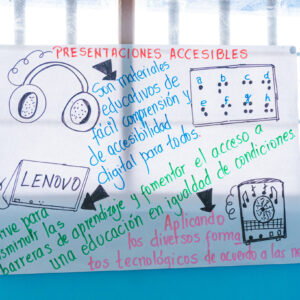 PRESENTACIONES ACCESIBLES
Son materiales
educativos de
fácil comprensión y
de accesibilidad
digital para todos.
a b c d
e f g h
LENOVO
para
las
barreras de aprendizaje y fomentar el acceso a
una educación en igualdad de condiciones
Aplicando
los diversos forma
tos tecnológicos de acuerdo a las